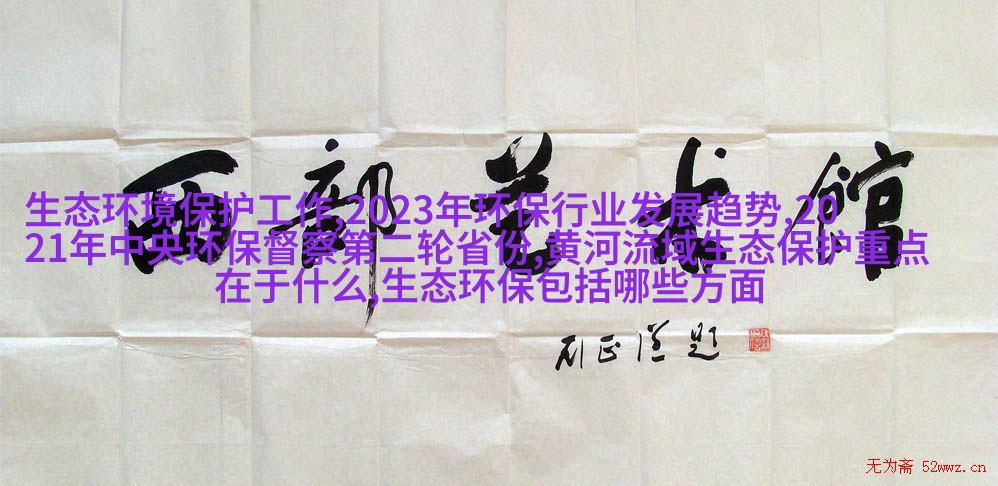 西部艺术馆
生态环境保护工作,2023年环保行业发展趋势,20
21年中央环保督察第二轮省份,黄河流域生态保护重点
在于什么,生态环保包括哪些方面
无为斋 52wwz.cn